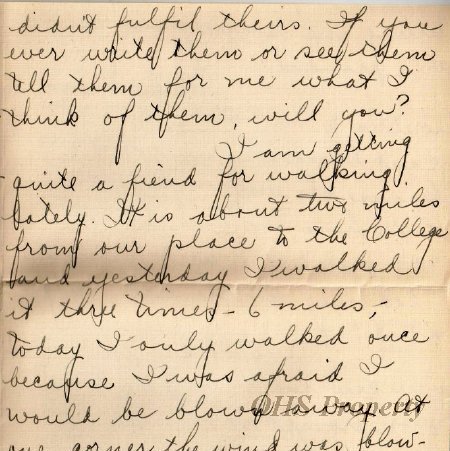 didn't fulfil theirs. If you
ever write them or see them
tell them for me what I
think of them, will you?
I am getting
quite a fiend for walking
lately. It is about two miles
from our place to the College
and yesterday I walked
it three times - 6 miles,
today I only walked once
because I was afraid I
would be blown away. At
one corner the wind was blow-
OHS Property